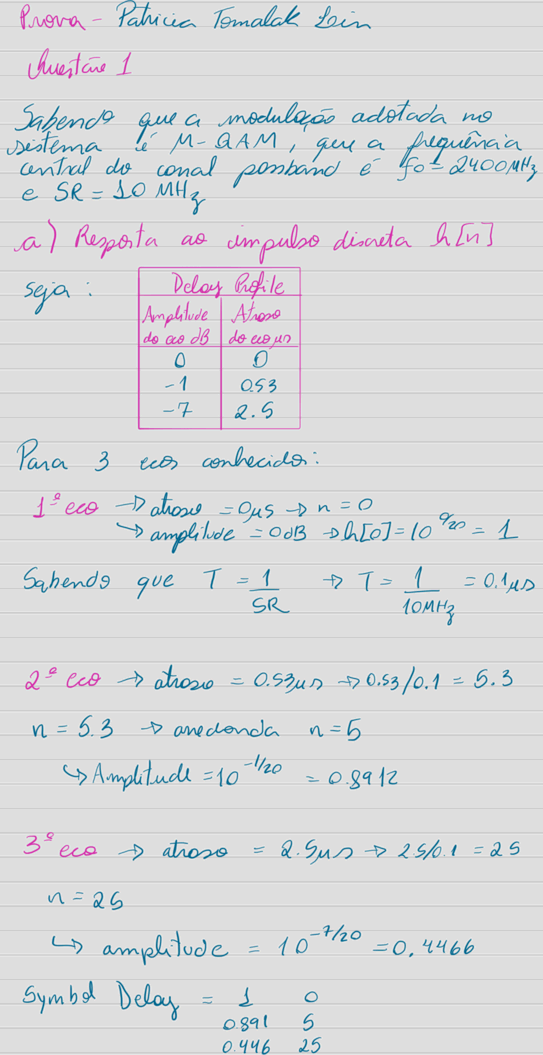 Prova - Patricia Tomalak Loin
Questão 1
Sabendo que a modulação adotada no
sistema é M-QAM, que a frequência
central do canal passband é f0=2400MHz
e SR = 10 MHz
a) Resposta ao impulso discreta h[n]
seja :
Delay Profile
Amplitude do eco dB | Atraso do eco μs
0 | 0
-1 | 0.53
-7 | 2.5
Para 3 ecos conhecidos:
1º eco → atraso = 0μs → n = 0
↳ amplitude = 0dB → h[0] = 10^0/20 = 1
Sabendo que T = 1/SR → T = 1/10MHz = 0.1μs
2º eco → atraso = 0.53μs → 0.53/0.1 = 5.3
n = 5.3 → arredonda n = 5
↳ Amplitude = 10^-1/20 = 0.8912
3º eco → atraso = 2.5μs → 2.5/0.1 = 25
n = 25
↳ amplitude = 10^-7/20 = 0.4466
Symbol Delay = 1 0
0.891 5
0.446 25